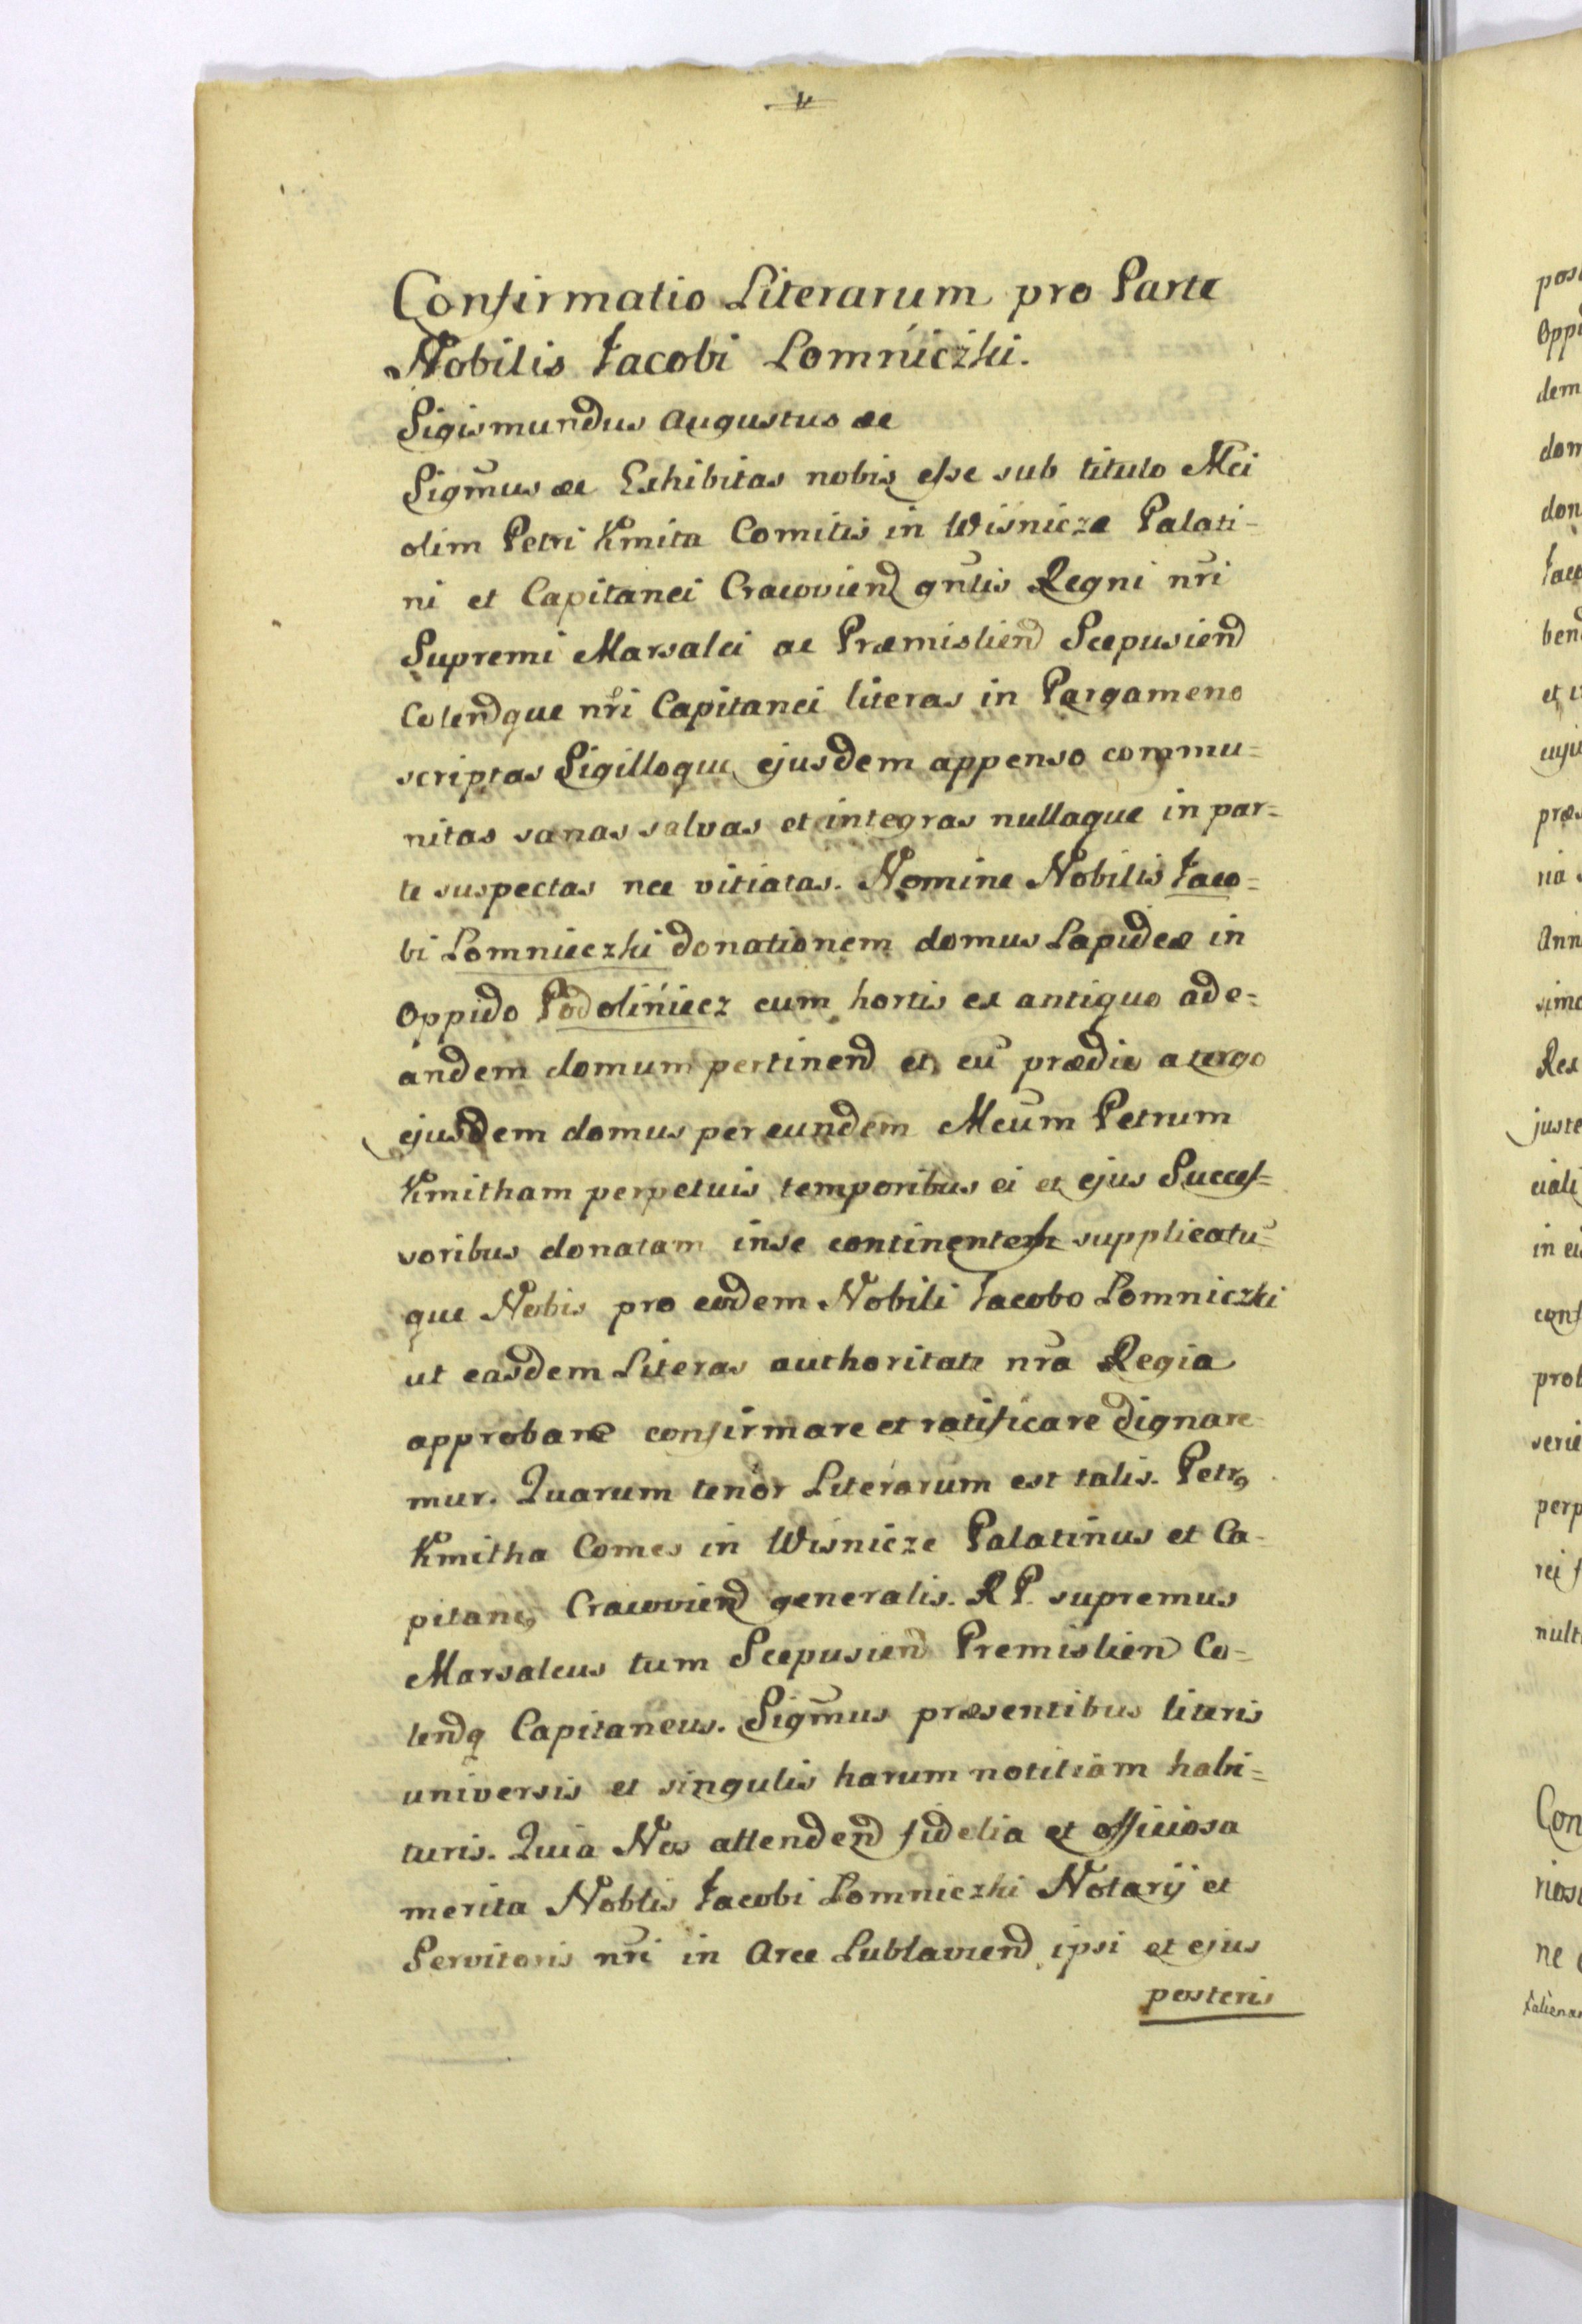 Confirmatio Literarum pro Parte
Nobilis Jacobi Lomniczki.
Sigismundus Augustus &c
Sigmus &c Exhibitas nobis esse sub titulo Mci
olim Petri Kmita Comitis in Wisnicze Palati-
ni et Capitanei Cracoviend gnlis Regni nri
Supremi Marsalci ac Præmisliend Scepusiend
Colendque nri Capitanei literas in Pargameno
scriptas Sigilloque ejusdem appenso commu=
nitas sanas salvas et integras nullaque in par=
te suspectas nec vitiatas. Nomine Nobilis Jaco=
bi Lomnieczki donationem domus Lapideæ in
Oppido Podoliniecz cum hortis ex antiquo ade=
andem domum pertinend et cu prædio a tergo
ejusdem domus per eundem Mcum Petrum
Kmitham perpetuis temporibus ei et ejus Succes=
soribus donatam inse continentem supplicatu=
que Nobis pro eodem Nobili Jacobo Lomniczki
ut easdem Literas authoritate nra Regia
approbare confirmare et ratificare dignare-
mur. Quarum tenor Literarum est talis. Petr9
Kmitha Comes in Wisnicze Palatinus et Ca-
pitane9 Cracoviend generalis. R P. supremus
Marsalcus tum Scepusiend Premislien Co=
lendq Capitaneus. Sigmus præsentibus literis
universis et singulis harum notitiam habi=
turis. Quia Nos attendend fidelia et officiosa
merita Noblis Jacobi Lomniczki Notarij et
Servitoris nri in Arce Lublaviend ipsi et ejus
posteris